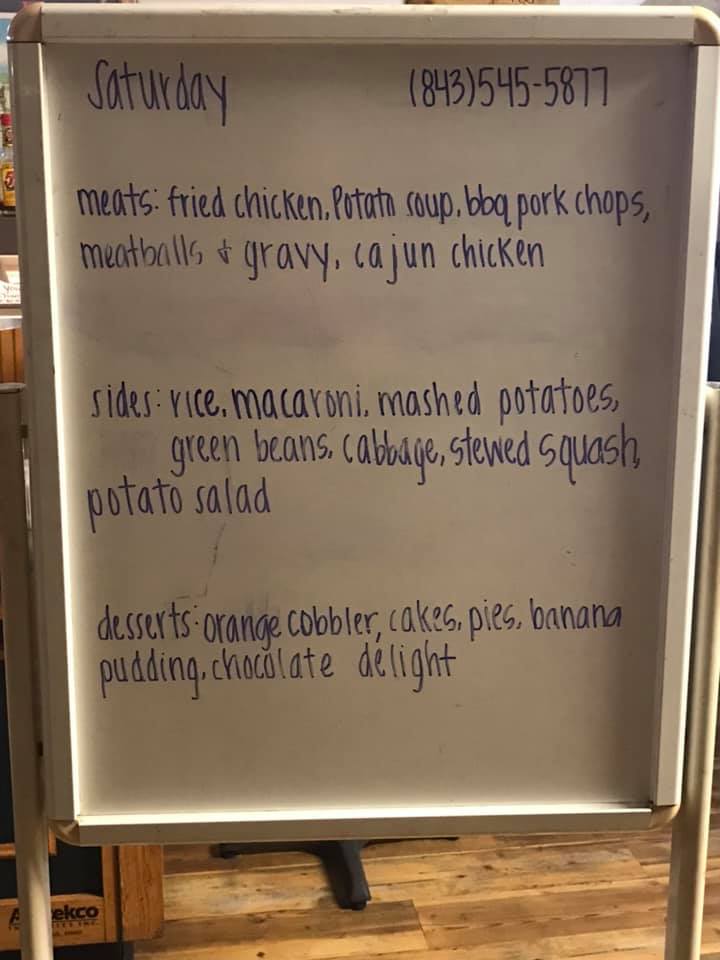 Saturday (843)545-5877
meats: fried chicken, Potato soup, bbq pork chops,
meatballs & gravy, cajun chicken
sides: rice, macaroni, mashed potatoes,
green beans, cabbage, stewed squash,
potato salad
desserts: orange cobbler, cakes, pies, banana
pudding, chocolate delight